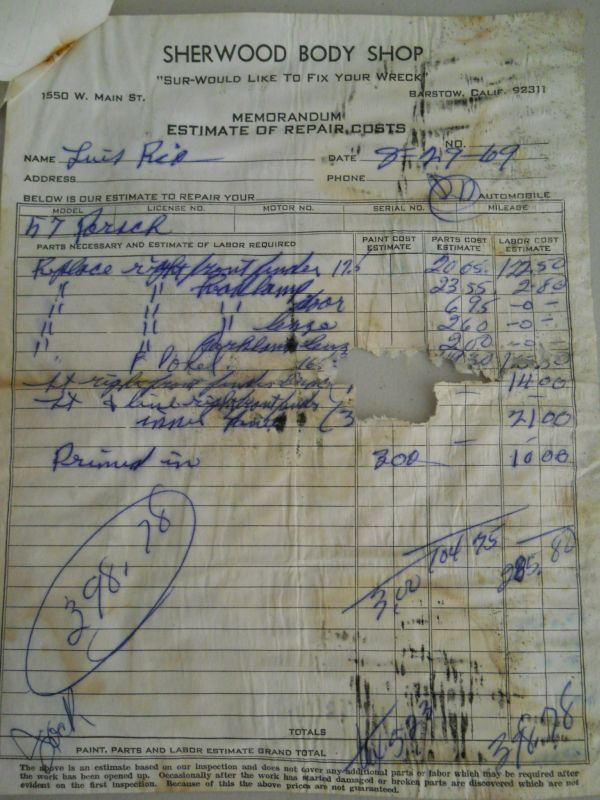 SHERWOOD BODY SHOP
"SUR-WOULD LIKE TO FIX YOUR WRECK"
1550 W. MAIN ST. BARSTOW, CALIF. 92311
MEMORANDUM
ESTIMATE OF REPAIR COSTS
NO.
NAME Luis DATE 8-29-69
ADDRESS PHONE
BELOW IS OUR ESTIMATE TO REPAIR YOUR AUTOMOBILE
MODEL LICENSE NO. MOTOR NO. SERIAL NO. MILEAGE
57 Porsch
PARTS NECESSARY AND ESTIMATE OF LABOR REQUIRED PAINT COST ESTIMATE PARTS COST ESTIMATE LABOR COST ESTIMATE
Replace right front finder 17.5 122.50
" " 23 55 2.80
" " " door 6 95 -0-
" " " 2 60 -0-
" " 2 00 -0-
right front finder 14 00
& line right front finder 21 00
inner (3
Primed in 3 00 10 00
104 75
3.00
398.78
TOTALS
PAINT, PARTS AND LABOR ESTIMATE GRAND TOTAL 5.23 398.78
The above is an estimate based on our inspection and does not cover any additional parts or labor which may be required after
the work has been opened up. Occasionally after the work has started damaged or broken parts are discovered which are not
evident on the first inspection. Because of this the above prices are not guaranteed.